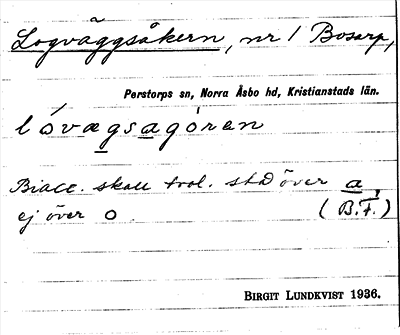 Logväggsåkern, nr 1 Bosarp,
Perstorps sn, Norra Åsbo hd, Kristianstads län.
lóvægsagóren
Biacc. skall trol. stå över a,
ej över o. (B.F.)
BIRGIT LUNDKVIST 1936.